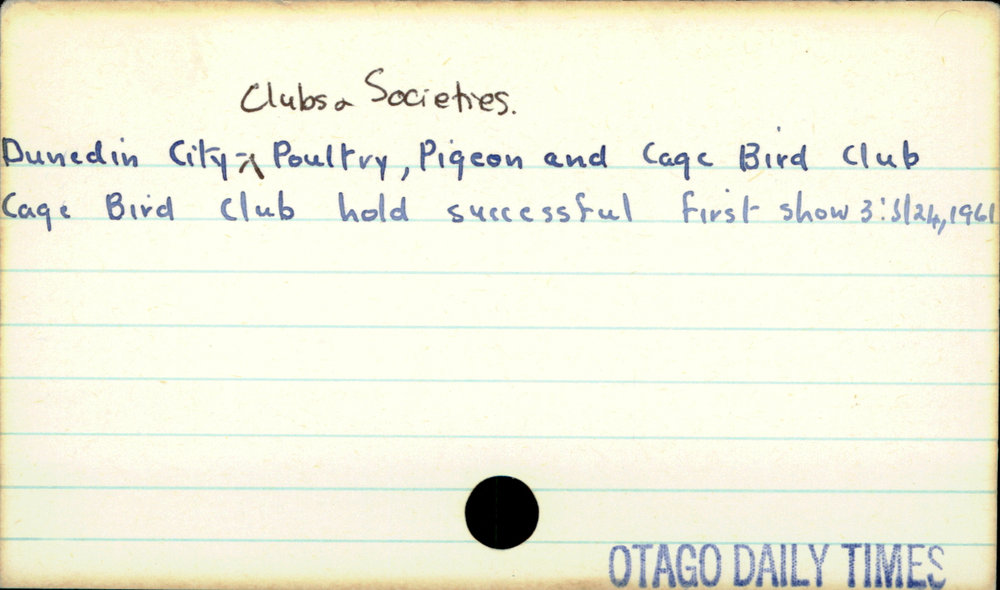 Clubs & Societies.
Dunedin City - Poultry, Pigeon and Cage Bird Club
Cage Bird Club hold successful first show 3:5/24, 1961
OTAGO DAILY TIMES